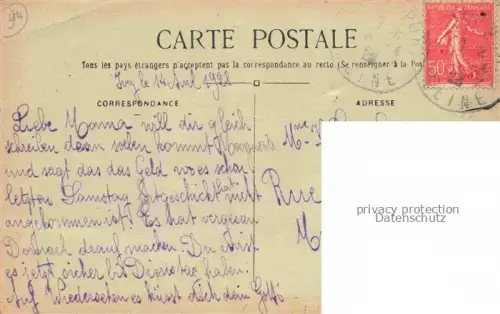 94
CARTE POSTALE
Tous les pays étrangers n'acceptent pas la correspondance au recto (Se renseigner à la Pos
le 14 1928
CORRESPONDANCE
ADRESSE
REPUBLIQUE FRANÇAISE
50c
SEINE
SEINE
Liebe Mama will dir gleich
schreiben denn soeben kommt
und sagt das das Geld wo es schon
letzten Samstag fortgeschickt hat nicht
angekommen ist! Es hat vergessen
darauf machen. Du wirst
es jetzt sicher bis Dienstag haben.
Auf Wiedersehen es küsst dich dein
Mme
Rue
M
privacy protection
Datenschutz